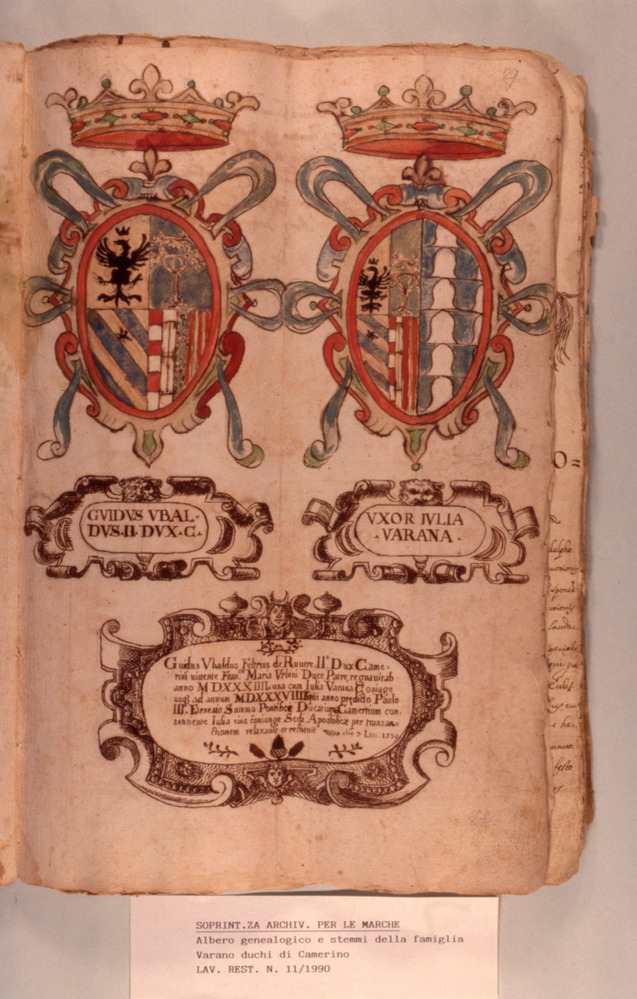 29
GUIDVS VBAL-
DVS·II·DVX·C·
VXOR IVLIA
·VARANA·
Guidus Vbaldus Feltrius de Ruuere II.s Dux Came-
rini uiuente Fran.co Maria Vrbini Duce Patre regnauit ab
anno MDXXXIIII. una cum Iulia Varana Coniuge
usq; ad annum MDXXXVIIII qui anno predicto Paulo
III.o Summo Pontifice Ducatum Camertum con-
sentiente Iulia eius coniuge Sedi Apostolicæ per transa-
ctionem relaxauit et restituit
SOPRINT.ZA ARCHIV. PER LE MARCHE
Albero genealogico e stemmi della famiglia
Varano duchi di Camerino
LAV. REST. N. 11/1990